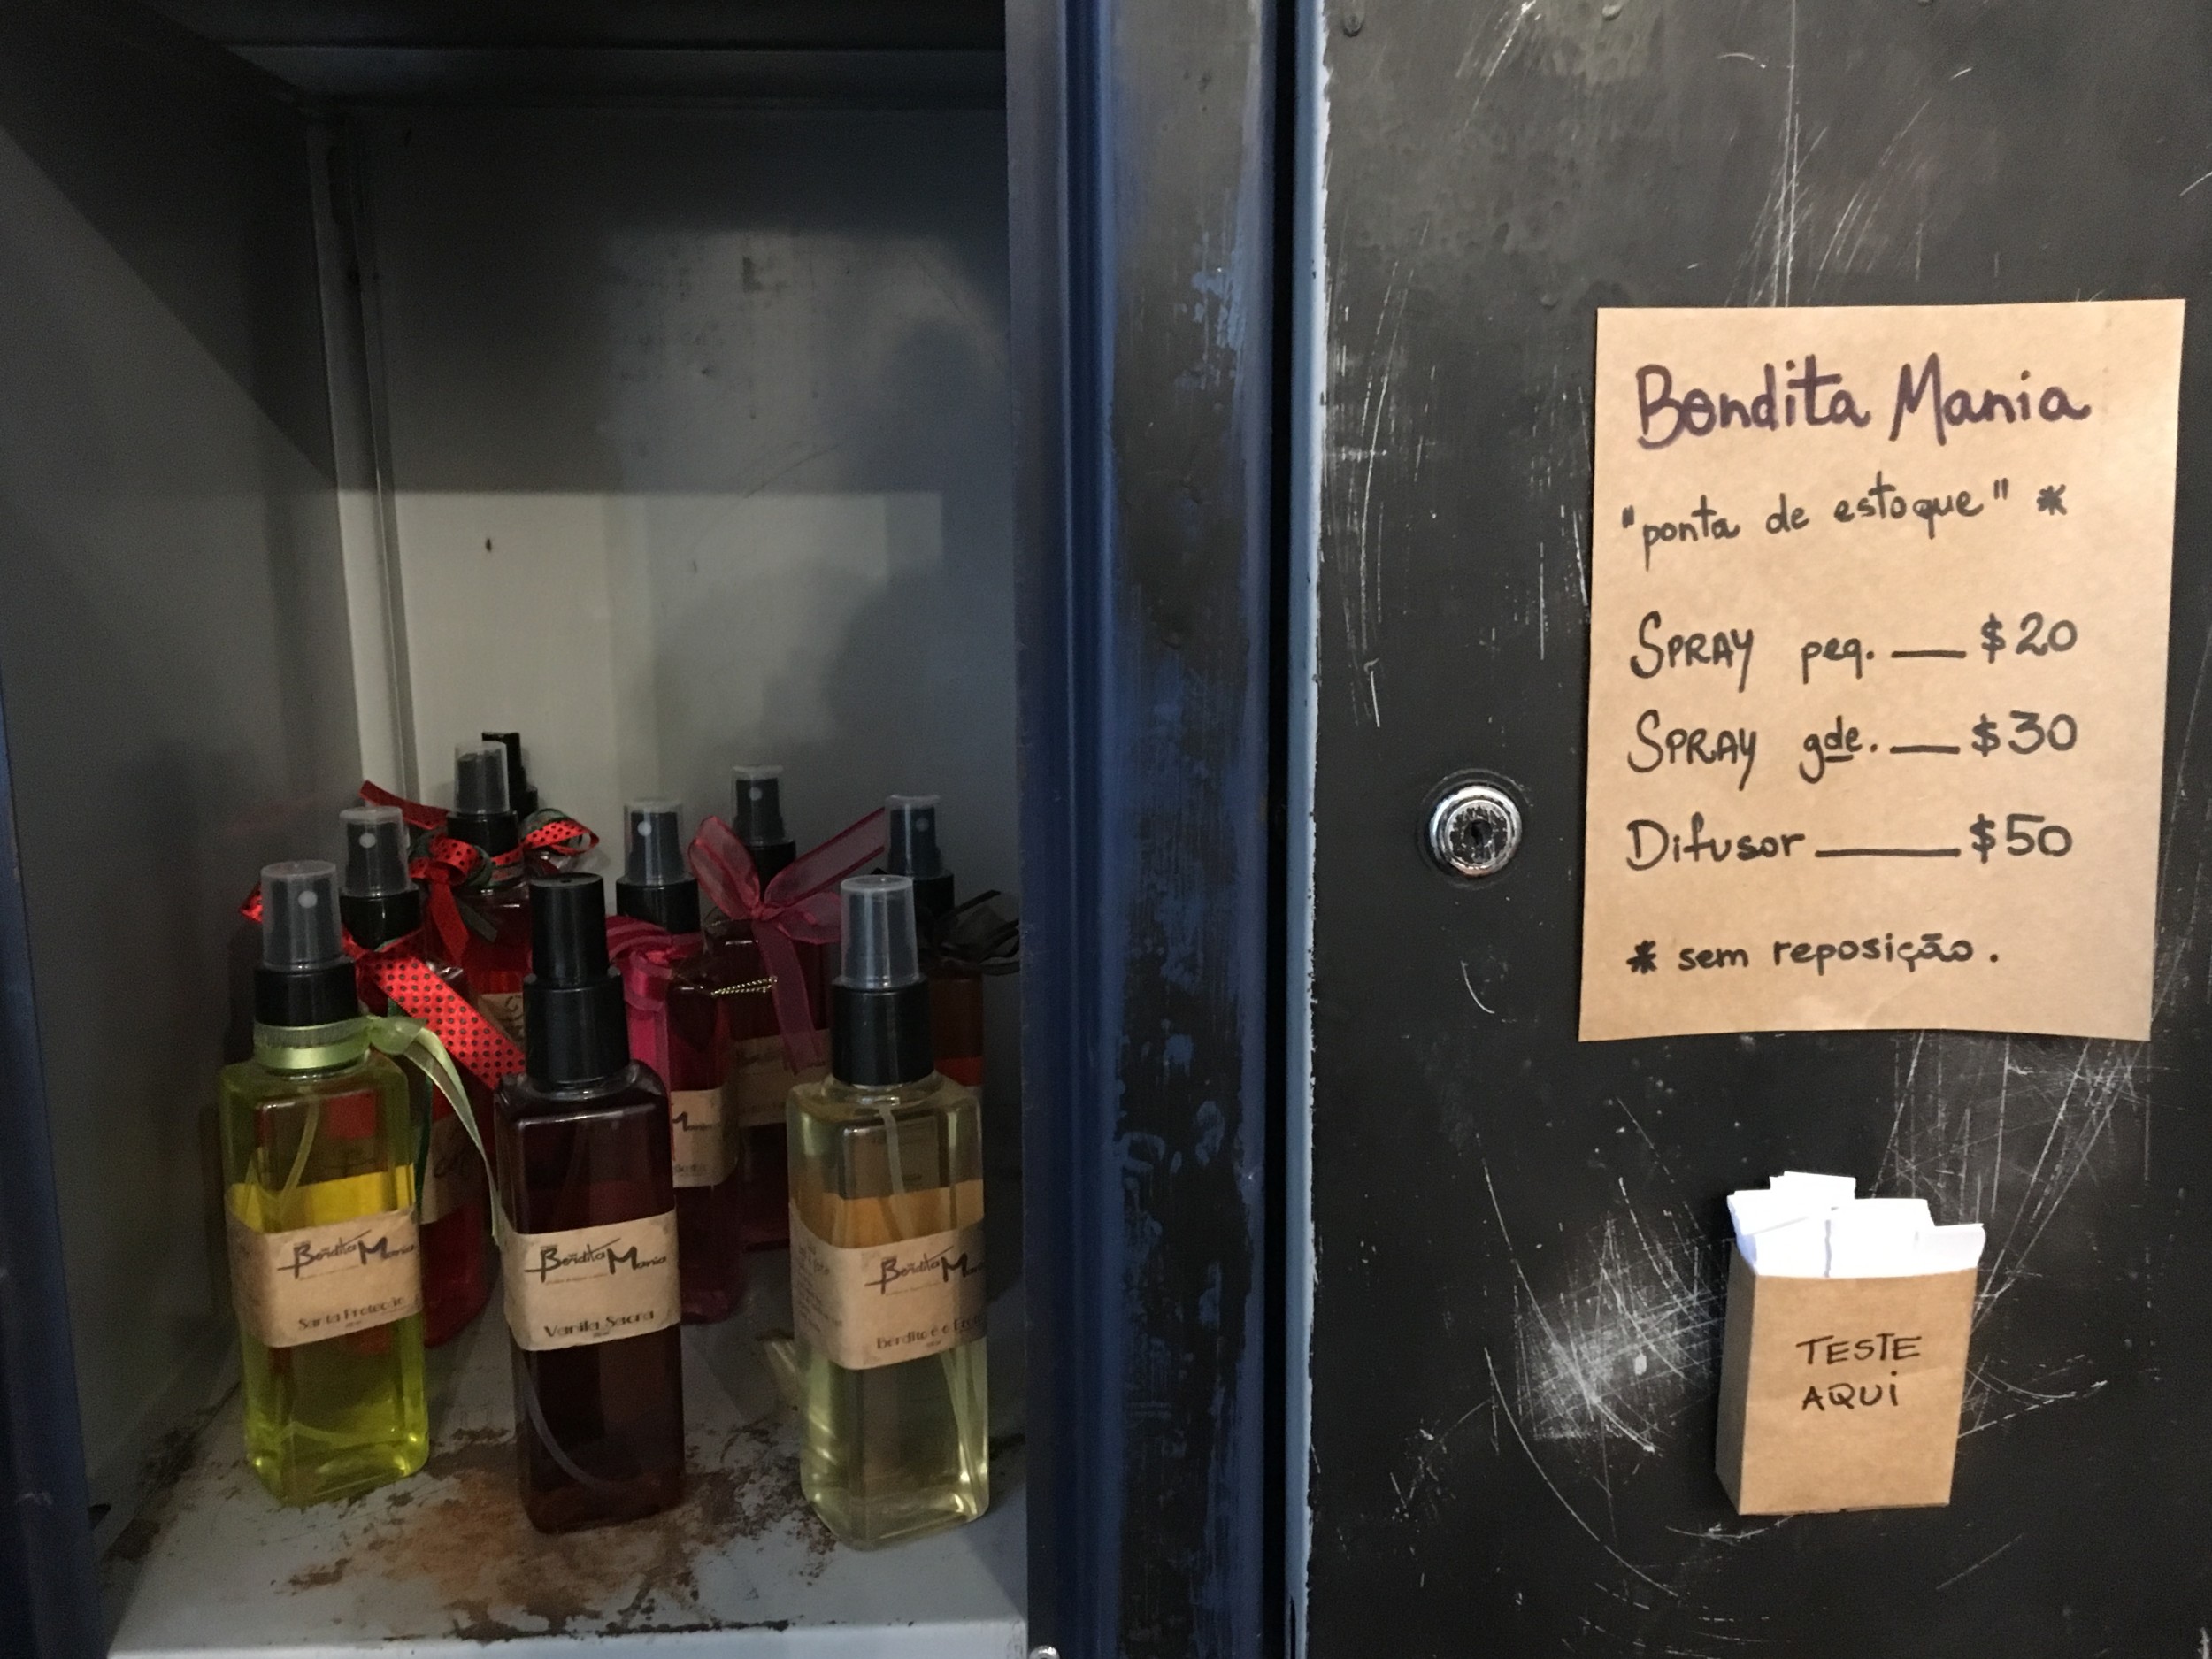 Bendita Mania
"ponta de estoque" *
SPRAY peq. — $20
SPRAY gde. — $30
Difusor — $50
* sem reposição.
TESTE
AQUi
Bendita Mania
Santa Proteção
Bendita Mania
Vanila Sacra
Bendita Mania
Bendito é o